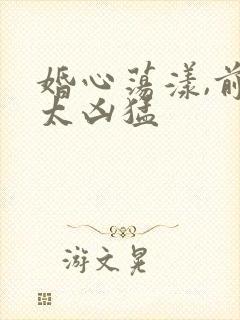 婚心荡漾,前
太凶猛
游文晃